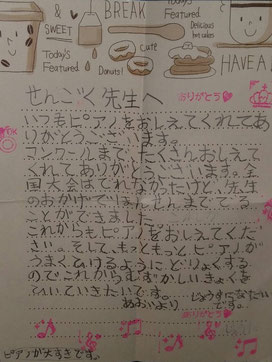 BREAK
& SWEET
Today's Featured
Today's Featured
Donuts!
Café
Delicious hot cakes
HAVE A
せんごく先生へ
ありがとう
いつもピアノをおしえてくれてあ
りがとうございます。
コンクールまで、たくさんおしえて
くれてありがとうございます。全
国大会はでれなかったけど、先生
のおかげでほんせんまででる
ことができました
これからもピアノをおしえてくだ
さい。そして、もっともっとピアノが
うまくひけるようにどりょくする
ので、これからもむずかしいきょくを
ひいていきたいです。
めおいより
じょうずになたいです。
ありがとう
ピアノが大すきです。
OK